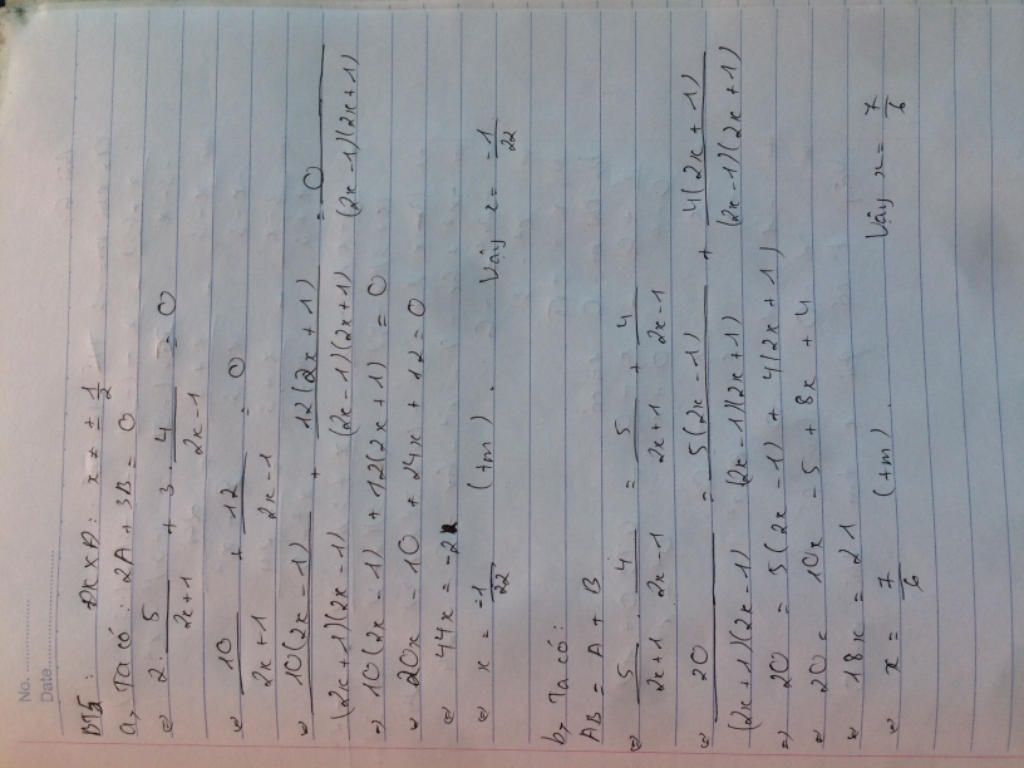 No. ..................
Date ..................
Bài 5: ĐKXĐ: x ≠ ± 1/2
a, Ta có: 2A + 3B = 0
⇔ 2 . 5/(2x+1) + 3 . 4/(2x-1) = 0
⇔ 10/(2x+1) + 12/(2x-1) = 0
⇔ 10(2x-1)/((2x+1)(2x-1)) + 12(2x+1)/((2x-1)(2x+1)) = 0/((2x-1)(2x+1))
⇒ 10(2x-1) + 12(2x+1) = 0
⇔ 20x - 10 + 24x + 12 = 0
⇔ 44x = -2
⇔ x = -1/22 (tm). Vậy x = -1/22
b, Ta có:
AB = A + B
⇔ 5/(2x+1) . 4/(2x-1) = 5/(2x+1) + 4/(2x-1)
⇔ 20/((2x+1)(2x-1)) = 5(2x-1)/((2x-1)(2x+1)) + 4(2x+1)/((2x-1)(2x+1))
⇒ 20 = 5(2x-1) + 4(2x+1)
⇔ 20 = 10x - 5 + 8x + 4
⇔ 18x = 21
⇔ x = 7/6 (tm). Vậy x = 7/6